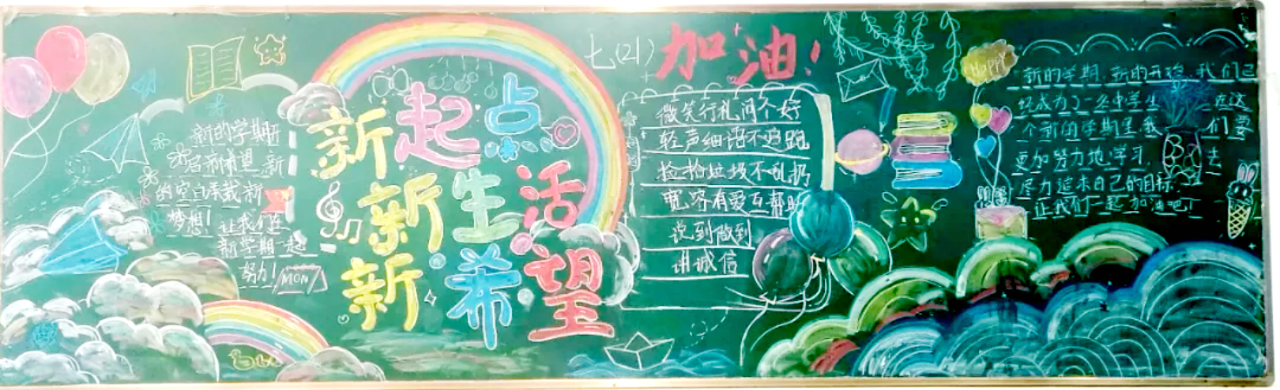 新的学期开
启新希望,新
的空白承载新
梦想!让我们在
新学期一起
努力!
MOM
新起点
新生活
新希望
七(21)加油!
微笑行礼问个好
轻声细语不追跑
捡拾垃圾不乱扔
宽容有爱互帮助
说到做到
讲诚信
Happy
新的学期,新的开始,我们已
经成为了一名中学生,在这
个新的学期里我们要
更加努力地学习,去
尽力追求自己的目标,
让我们一起加油吧!